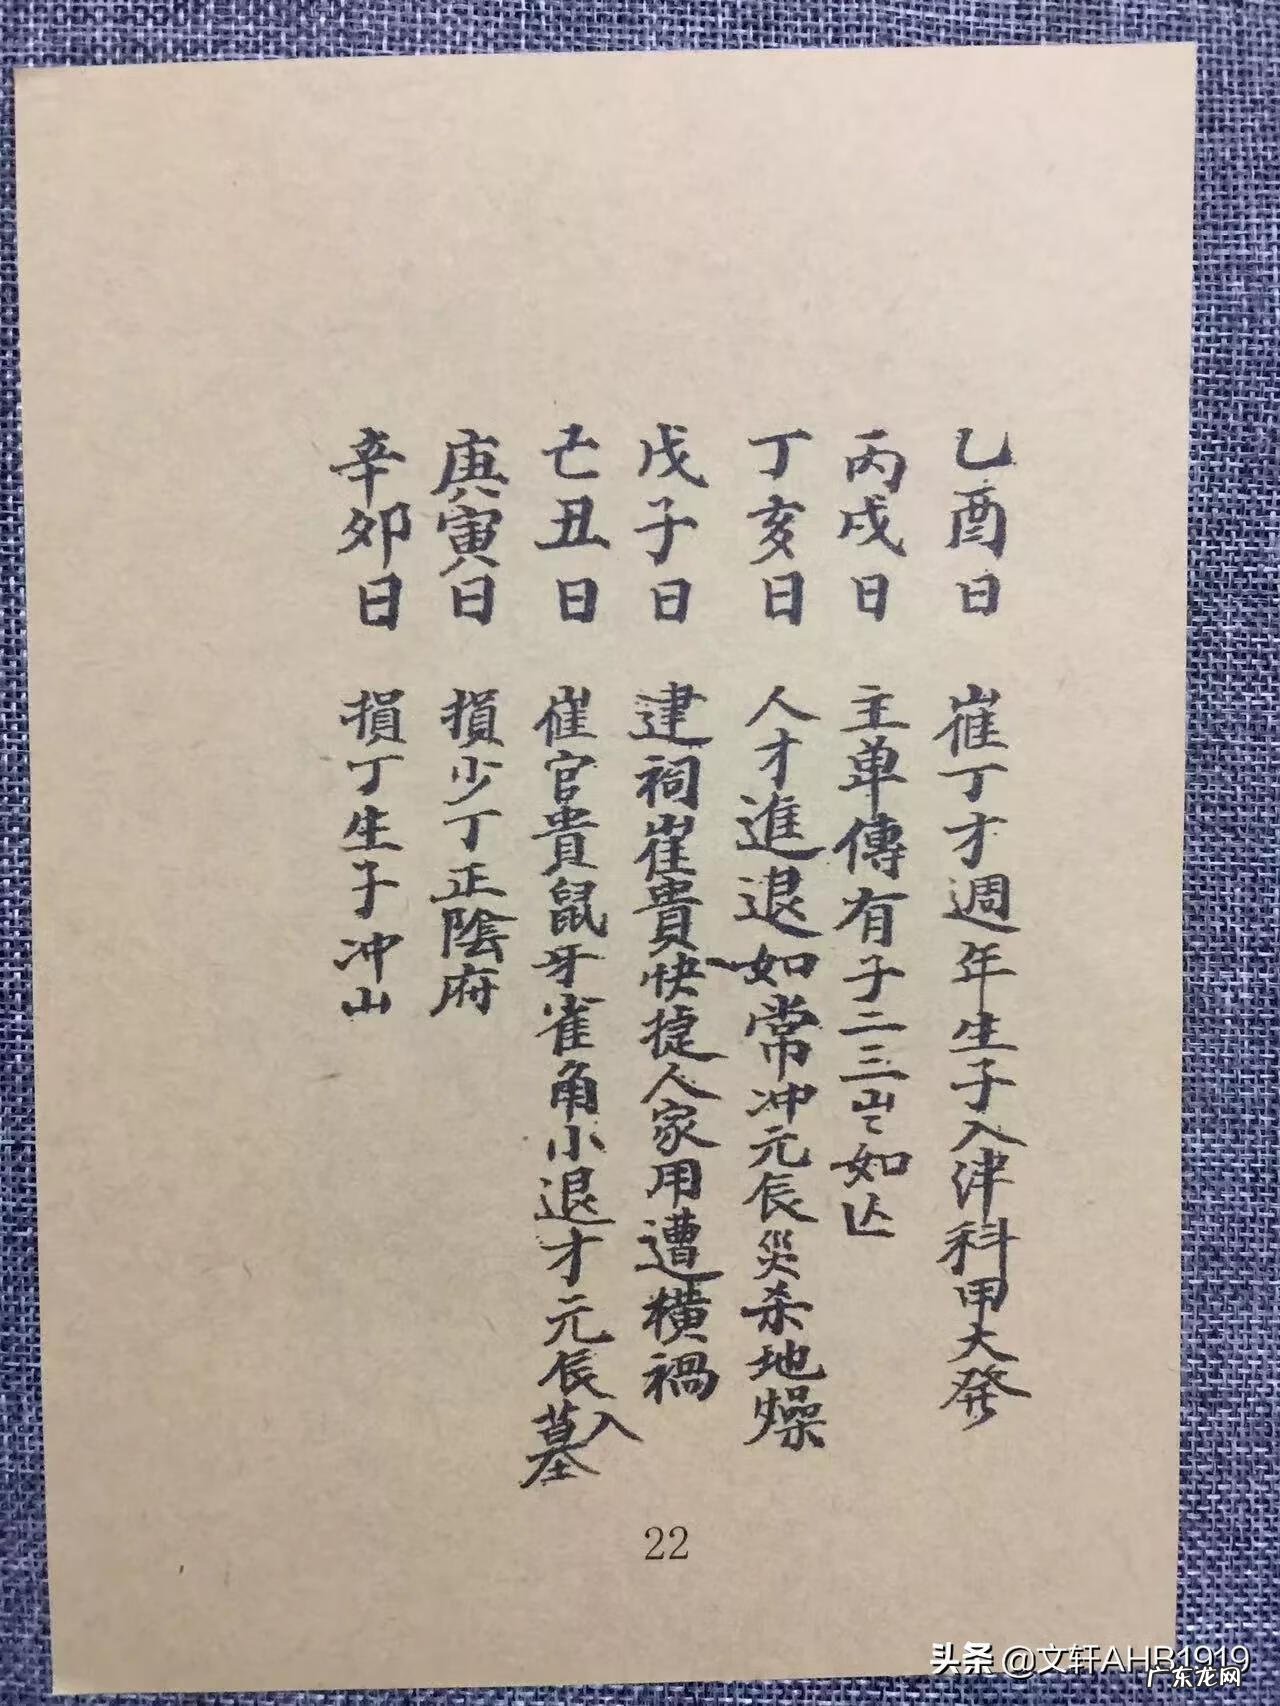 乙酉日 崔丁才週年生子入津科甲大發
丙戌日 主单傳有子二三岀如
丁亥日 人才進退如常冲元辰災杀地燥
戊子日 建祠崔貴快捷人家用遭横禍
己丑日 崔官貴鼠牙雀角小退才元辰入墓
庚寅日 損少丁正陰府
辛卯日 損丁生子冲山
22
头条 @文轩AHB1919
广东龙网